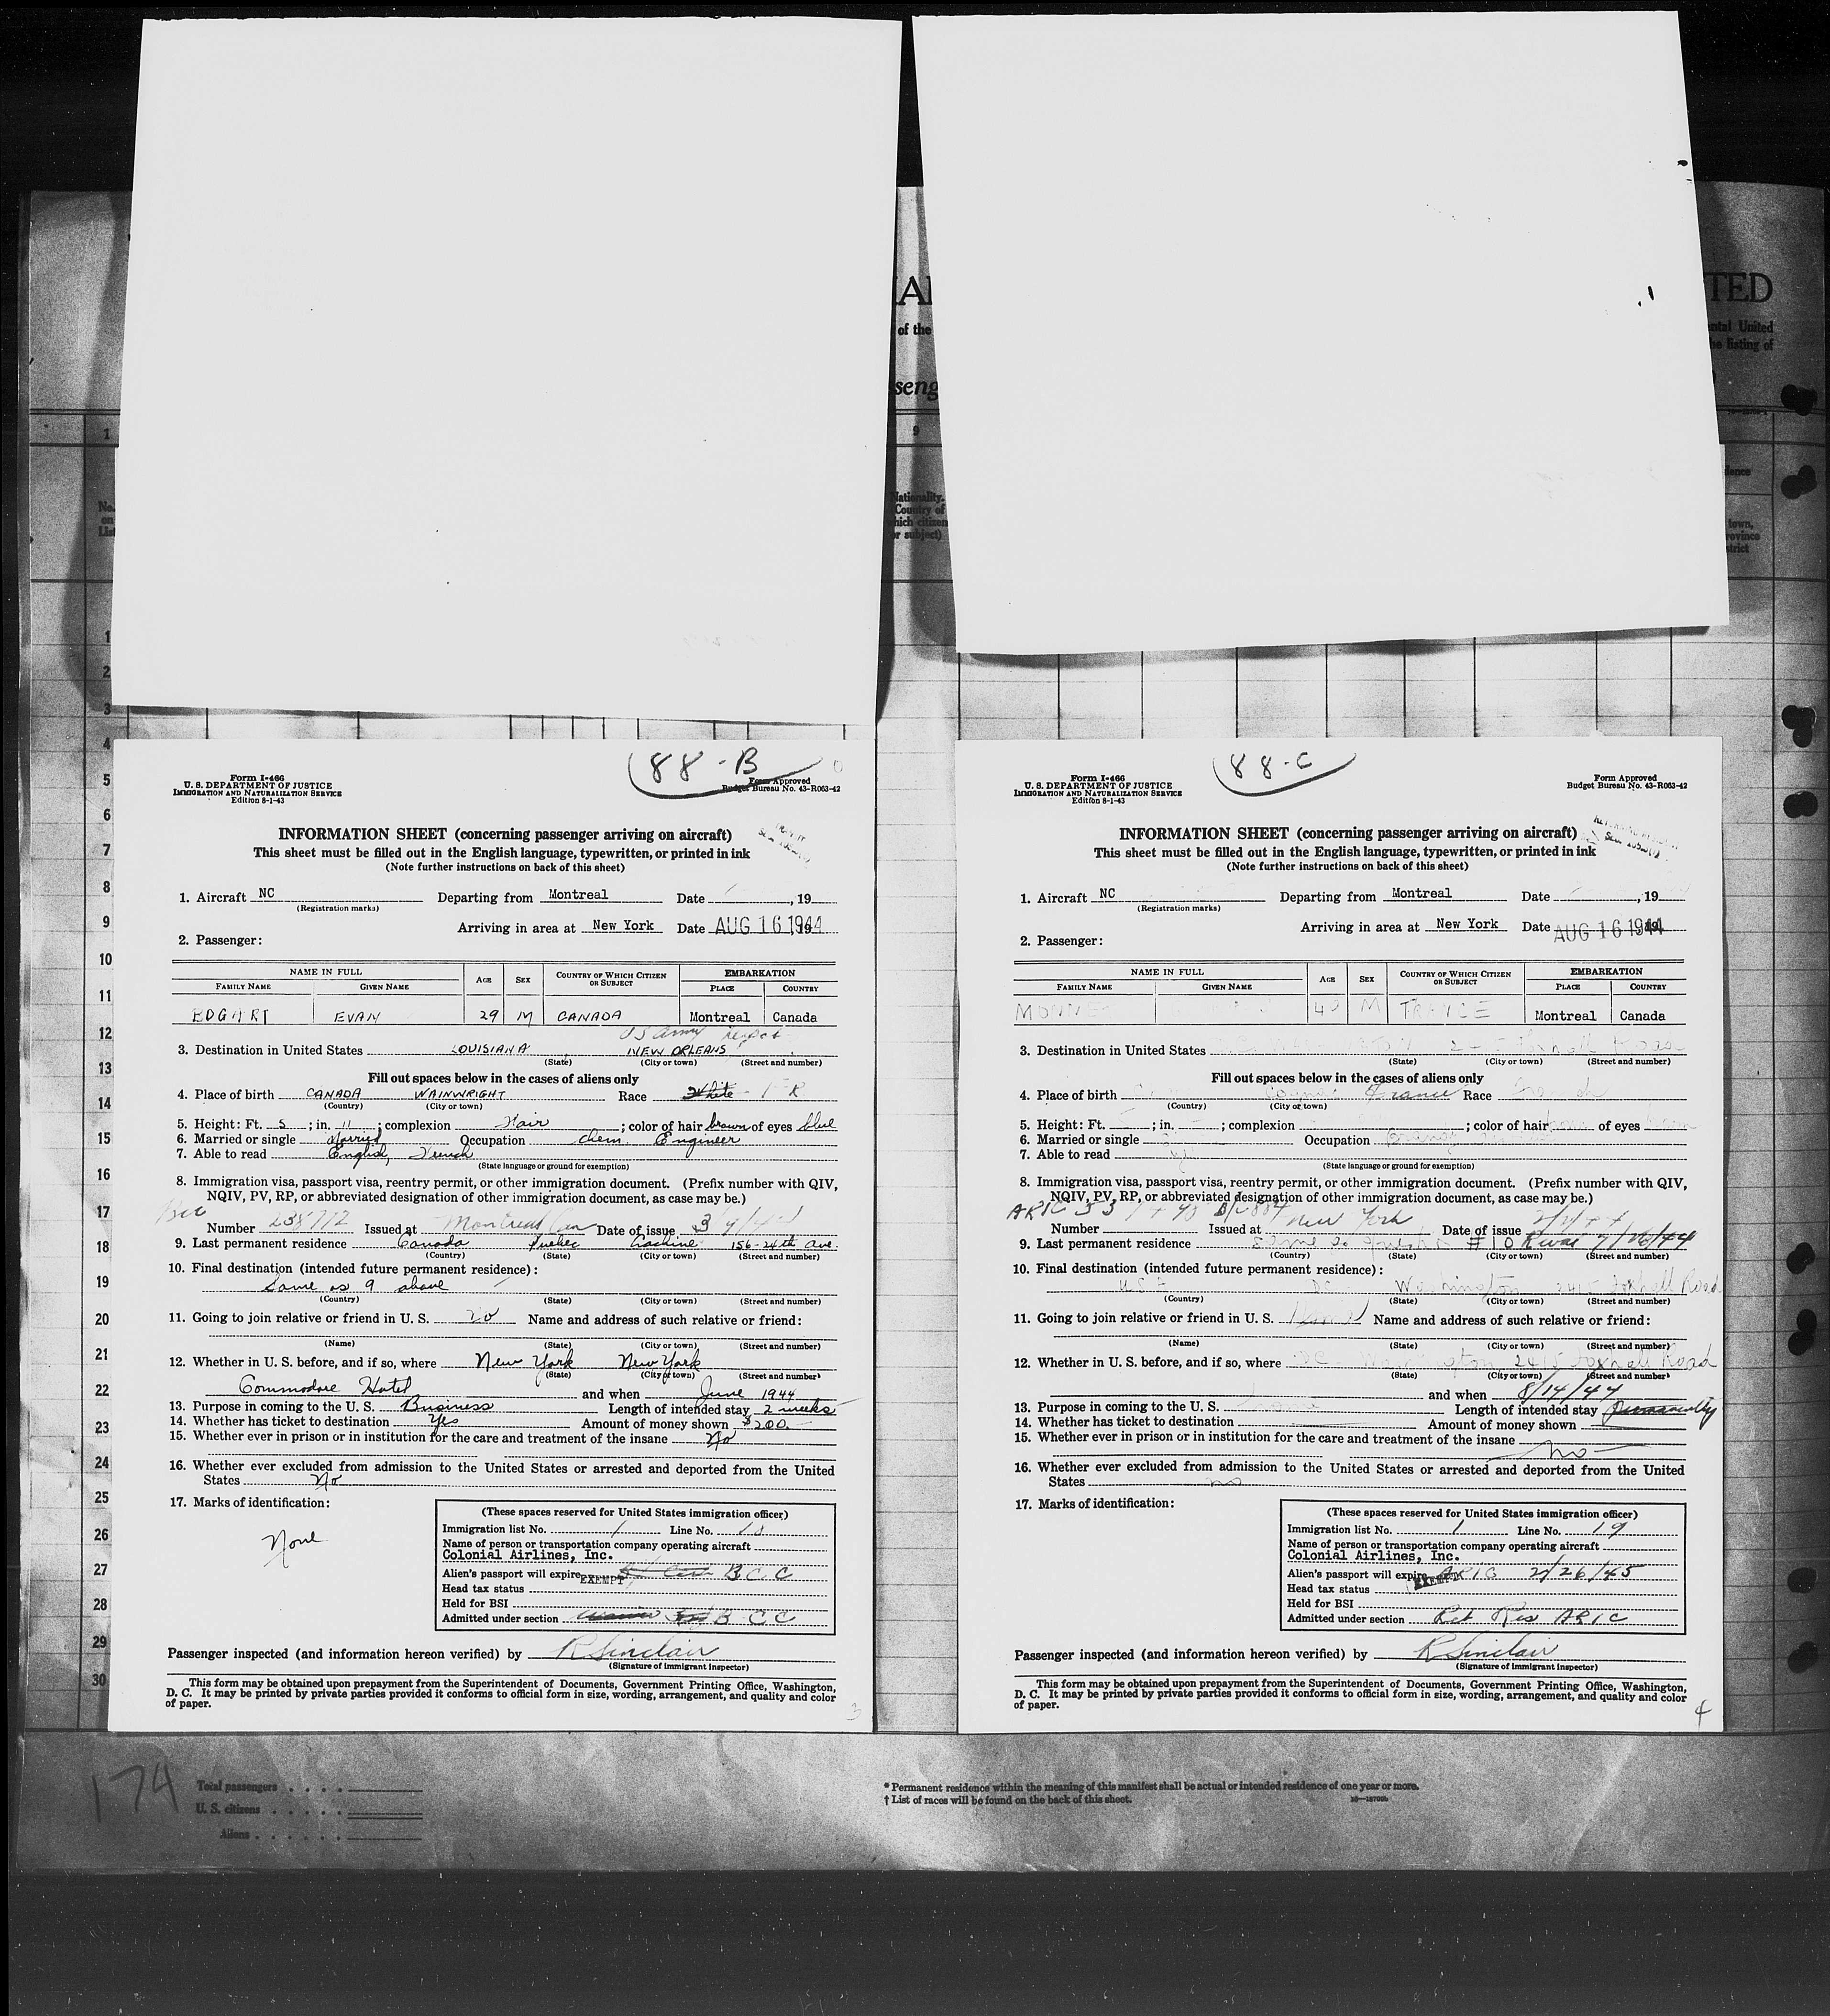 AI
TED
of the
ntal United
he listing of
seng
1
9
No.
on
List
Nationality.
Country of
which citizen
or subject)
dence
town,
province
strict
1
2
3
4
5
6
7
8
9
10
11
12
13
14
15
16
17
18
19
20
21
22
23
24
25
26
27
28
29
30
88-B
Form I-466
U. S. DEPARTMENT OF JUSTICE
IMMIGRATION AND NATURALIZATION SERVICE
Edition 8-1-43
Form Approved
Budget Bureau No. 43-R063-42
INFORMATION SHEET (concerning passenger arriving on aircraft)
This sheet must be filled out in the English language, typewritten, or printed in ink
(Note further instructions on back of this sheet)
1. Aircraft NC Departing from Montreal Date , 19
(Registration marks)
Arriving in area at New York Date AUG 16 1944
2. Passenger:
NAME IN FULL AGE SEX COUNTRY OF WHICH CITIZEN OR SUBJECT EMBARKATION
FAMILY NAME GIVEN NAME PLACE COUNTRY
EVAN 29 M CANADA Montreal Canada
US Army
3. Destination in United States LOUISIANA NEW ORLEANS
(State) (City or town) (Street and number)
Fill out spaces below in the cases of aliens only
4. Place of birth CANADA WAINWRIGHT Race White
(Country) (City or town)
5. Height: Ft. 5 ; in. 11 ; complexion Fair ; color of hair brown of eyes blue
6. Married or single Married Occupation Chem. Engineer
7. Able to read English, French
(State language or ground for exemption)
8. Immigration visa, passport visa, reentry permit, or other immigration document. (Prefix number with QIV,
NQIV, PV, RP, or abbreviated designation of other immigration document, as case may be.)
Number Issued at Montreal Can Date of issue
9. Last permanent residence Canada Quebec Lachine 156-24th Ave.
(Country) (State) (City or town) (Street and number)
10. Final destination (intended future permanent residence):
Same as 9 above
(Country) (State) (City or town) (Street and number)
11. Going to join relative or friend in U. S. No Name and address of such relative or friend:
(Name) (State) (City or town) (Street and number)
12. Whether in U. S. before, and if so, where New York New York
(State) (City or town) (Street and number)
Commodore Hotel and when June 1944
13. Purpose in coming to the U. S. Business Length of intended stay 2 weeks
14. Whether has ticket to destination Yes Amount of money shown $200.
15. Whether ever in prison or in institution for the care and treatment of the insane No
16. Whether ever excluded from admission to the United States or arrested and deported from the United
States No
17. Marks of identification:
None
(These spaces reserved for United States immigration officer)
Immigration list No. 1 Line No.
Name of person or transportation company operating aircraft
Colonial Airlines, Inc.
Alien's passport will expire BCC
EXEMPT
Head tax status
Held for BSI
Admitted under section BCC
Passenger inspected (and information hereon verified) by R Sinclair
(Signature of immigrant inspector)
This form may be obtained upon prepayment from the Superintendent of Documents, Government Printing Office, Washington,
D. C. It may be printed by private parties provided it conforms to official form in size, wording, arrangement, and quality and color
of paper.
3
88-C
Form I-466
U. S. DEPARTMENT OF JUSTICE
IMMIGRATION AND NATURALIZATION SERVICE
Edition 8-1-43
Form Approved
Budget Bureau No. 43-R063-42
INFORMATION SHEET (concerning passenger arriving on aircraft)
This sheet must be filled out in the English language, typewritten, or printed in ink
(Note further instructions on back of this sheet)
1. Aircraft NC Departing from Montreal Date , 19
(Registration marks)
Arriving in area at New York Date AUG 16 1944
2. Passenger:
NAME IN FULL AGE SEX COUNTRY OF WHICH CITIZEN OR SUBJECT EMBARKATION
FAMILY NAME GIVEN NAME PLACE COUNTRY
M FRANCE Montreal Canada
3. Destination in United States
(State) (City or town) (Street and number)
Fill out spaces below in the cases of aliens only
4. Place of birth Cognac France Race
(Country) (City or town)
5. Height: Ft. ; in. ; complexion ; color of hair of eyes
6. Married or single Occupation
7. Able to read
(State language or ground for exemption)
8. Immigration visa, passport visa, reentry permit, or other immigration document. (Prefix number with QIV,
NQIV, PV, RP, or abbreviated designation of other immigration document, as case may be.)
Number Issued at New York Date of issue
9. Last permanent residence
(Country) (State) (City or town) (Street and number)
10. Final destination (intended future permanent residence):
DC Washington 2415 Foxhall Road
(Country) (State) (City or town) (Street and number)
11. Going to join relative or friend in U. S. Name and address of such relative or friend:
(Name) (State) (City or town) (Street and number)
12. Whether in U. S. before, and if so, where DC Washington 2415 Foxhall Road
(State) (City or town) (Street and number)
and when 8/14/44
13. Purpose in coming to the U. S. Length of intended stay Permanently
14. Whether has ticket to destination Amount of money shown
15. Whether ever in prison or in institution for the care and treatment of the insane
No
16. Whether ever excluded from admission to the United States or arrested and deported from the United
States no
17. Marks of identification:
(These spaces reserved for United States immigration officer)
Immigration list No. 1 Line No. 19
Name of person or transportation company operating aircraft
Colonial Airlines, Inc.
Alien's passport will expire ARIC 2/26/45
EXEMPT
Head tax status
Held for BSI
Admitted under section Ret Res ARIC
Passenger inspected (and information hereon verified) by R Sinclair
(Signature of immigrant inspector)
This form may be obtained upon prepayment from the Superintendent of Documents, Government Printing Office, Washington,
D. C. It may be printed by private parties provided it conforms to official form in size, wording, arrangement, and quality and color
of paper.
4
174
Total passengers
U. S. citizens
Aliens
* Permanent residence within the meaning of this manifest shall be actual or intended residence of one year or more.
† List of races will be found on the back of this sheet.